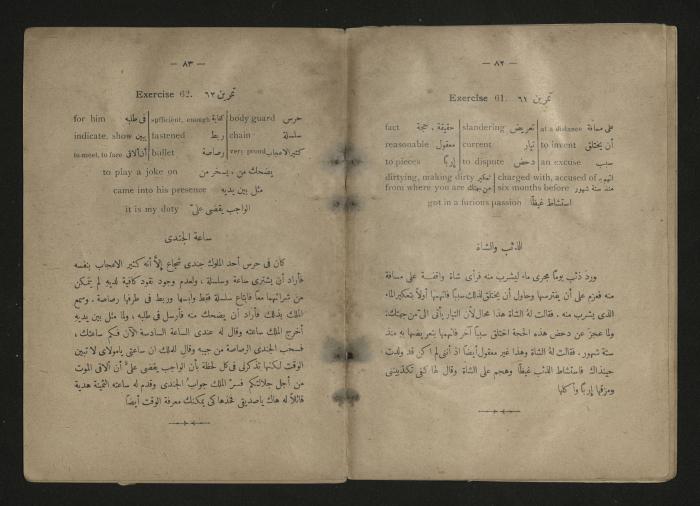 — ٨٢ —
Exercise 61. تمرين ٦١
fact حقيقة ، حجة slandering تعريض at a distance على مسافة
reasonable معقول current تيار to invent أن يختلق
to pieces إربًا to dispute دحض an excuse سبب
dirtying, making dirty تعكير charged with, accused of اتهم بـ
from where you are من جهتك six months before منذ ستة شهور
got in a furious passion استشاط غيظًا
الذئب والشاة
ورد ذئب يومًا مجرى ماء ليشرب منه فرأى شاة واقفة على مسافة
منه فعزم على أن يفترسها وحاول أن يختلق لذلك سببًا فاتهمها أولاً بتعكير الماء
الذى يشرب منه . فقالت له الشاة هذا محال لأن التيار يأتى الىّ من جهتك
ولما عجز عن دحض هذه الحجة اختلق سببًا آخر فاتهمها بتعريضها به منذ
ستة شهور . فقالت له الشاة وهذا غير معقول أيضًا اذ أننى لم اكن قد ولدت
حينذاك فاستشاط الذئب غيظًا وهجم على الشاة وقال لها كفى تكذبيننى
ومزقها إربًا وأكلها
— ٨٣ —
Exercise 62. تمرين ٦٢
for him فى طلبه sufficient, enough كفاية body guard حرس
indicate, show يبين fastened ربط chain سلسلة
to meet, to face أن ألاقى bullet رصاصة very proud كثير الاعجاب
to play a joke on يضحك من ، يسخر من
came into his presence مثل بين يديه
it is my duty الواجب يقضى علىّ
ساعة الجندى
كان فى حرس أحد الملوك جندى شجاع إلاّ أنه كثير الاعجاب بنفسه
فأراد أن يشترى ساعة وسلسلة ، ولعدم وجود نقود كافية لديه لم يتمكن
من شرائهما معًا فابتاع سلسلة فقط ولبسها وربط فى طرفها رصاصة . وسمع
الملك بذلك فأراد أن يضحك منه فأرسل فى طلبه ، ولما مثل بين يديه
أخرج الملك ساعته وقال له عندى الساعة السادسة الآن فكم ساعتك ،
فسحب الجندى الرصاصة من جيبه وقال للملك ان ساعتى يامولاى لا تبين
الوقت لكنها تذكرنى فى كل لحظة بأن الواجب يقضى علىّ أن ألاقى الموت
من أجل جلالتكم فسرّ الملك جواب الجندى وقدم له ساعته الثمينة هدية
قائلاً له هاك ياصديقى فخذها كى يمكنك معرفة الوقت أيضًا